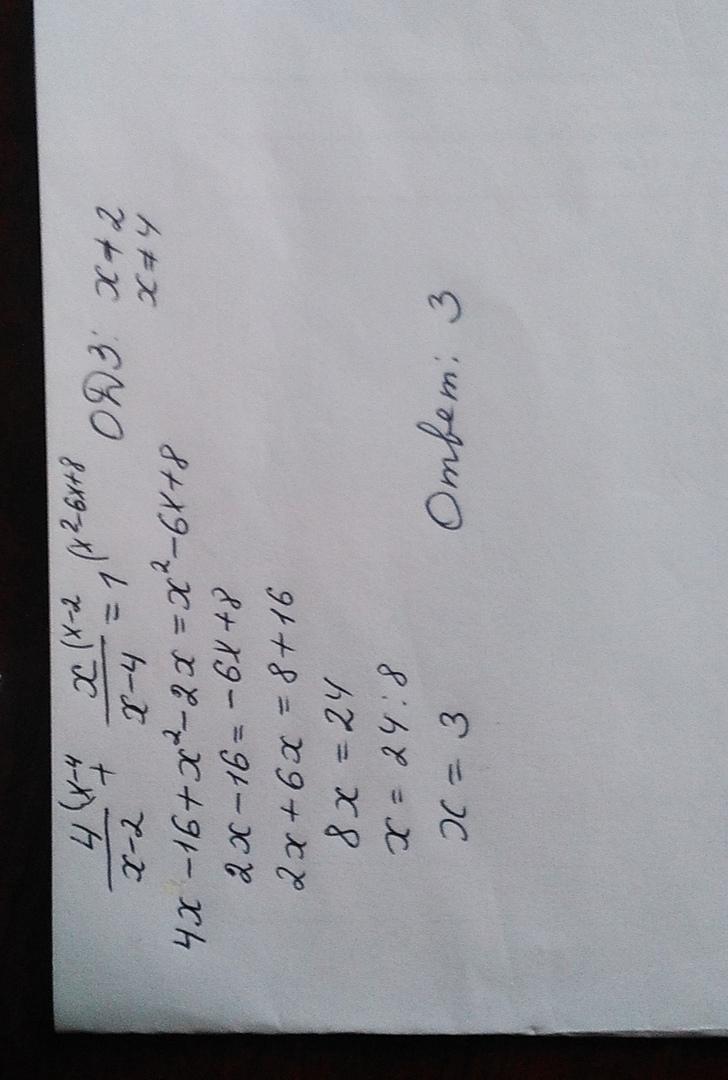 4(x-4/x-2 + x(x-2/x-4 = 1(x²-6x+8 ОДЗ: x≠2
x≠4
4x-16+x²-2x=x²-6x+8
2x-16=-6x+8
2x+6x=8+16
8x=24
x=24:8
x=3 Ответ: 3